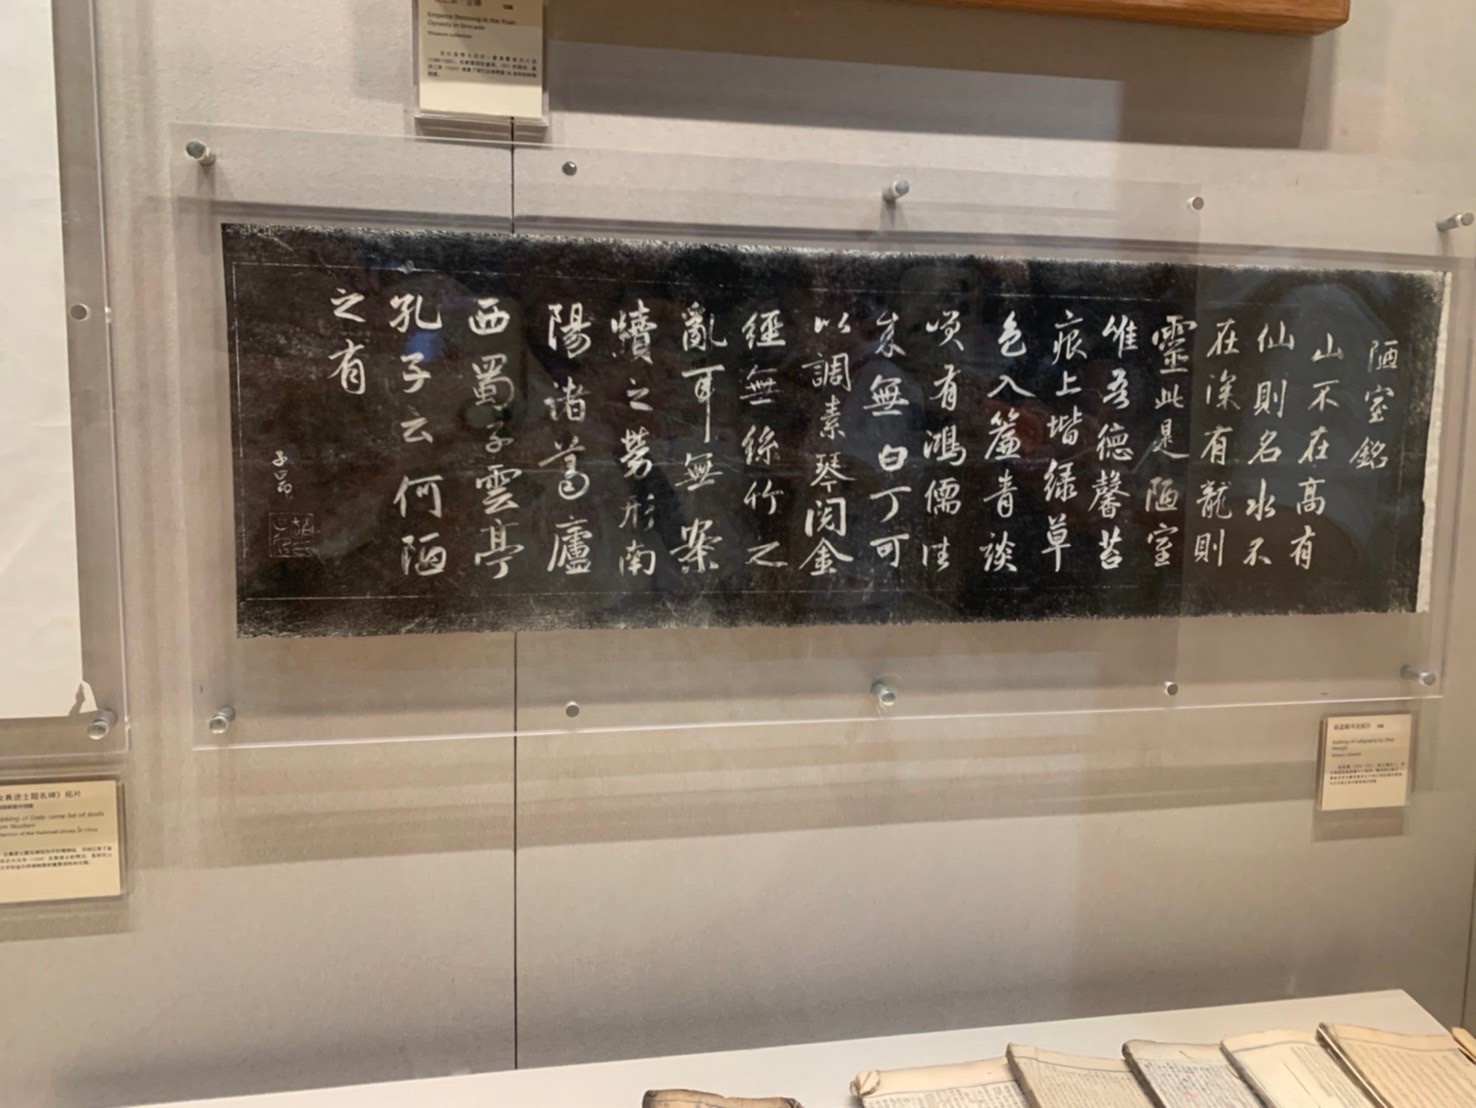 Emperor Renzong in the Yuan
Dynasty in brocade
陋室銘
山不在高有
仙則名水不
在深有龍則
靈此是陋室
唯吾德馨苔
痕上堦緑草
色入簾青談
笑有鴻儒往
來無白丁可
以調素琴閱金
經無絲竹之
亂耳無案
牘之勞形南
陽諸葛廬
西蜀子雲亭
孔子云何陋
之有
子昂
赵孟頫书法拓片
Rubbing of calligraphy by Zhao
Mengfu
女真进士题名碑》拓片